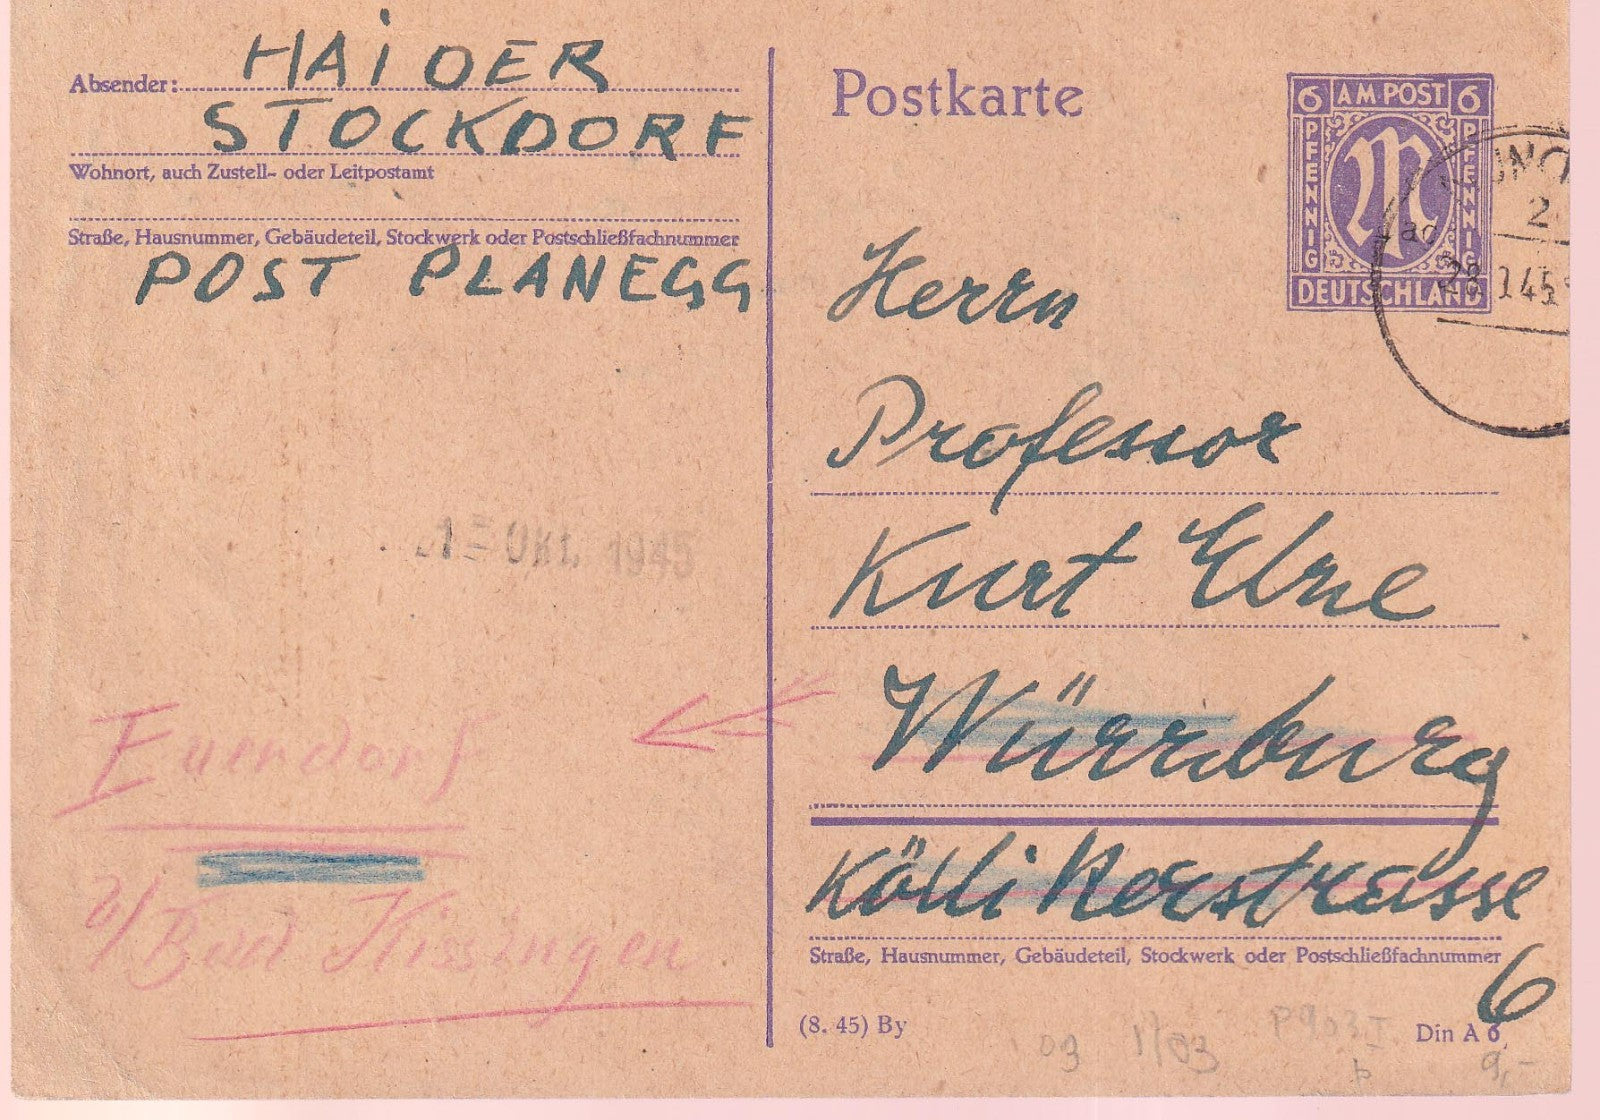 Absender: HAiDER
STOCKDORF
Wohnort, auch Zustell- oder Leitpostamt
Straße, Hausnummer, Gebäudeteil, Stockwerk oder Postschließfachnummer
POST PLANEGG
1 - Okt. 1945
Euerdorf
b/ Bad Kissingen
Postkarte
6 AM POST 6
PFENNIG
M
PFENNIG
DEUTSCHLAND
ac
28. 45
Herrn
Professor
Kurt
Würzburg
Kölli Kerstrasse
6
Straße, Hausnummer, Gebäudeteil, Stockwerk oder Postschließfachnummer
(8. 45) By
Din A 6
09 1/03
P903 I
b
9,-